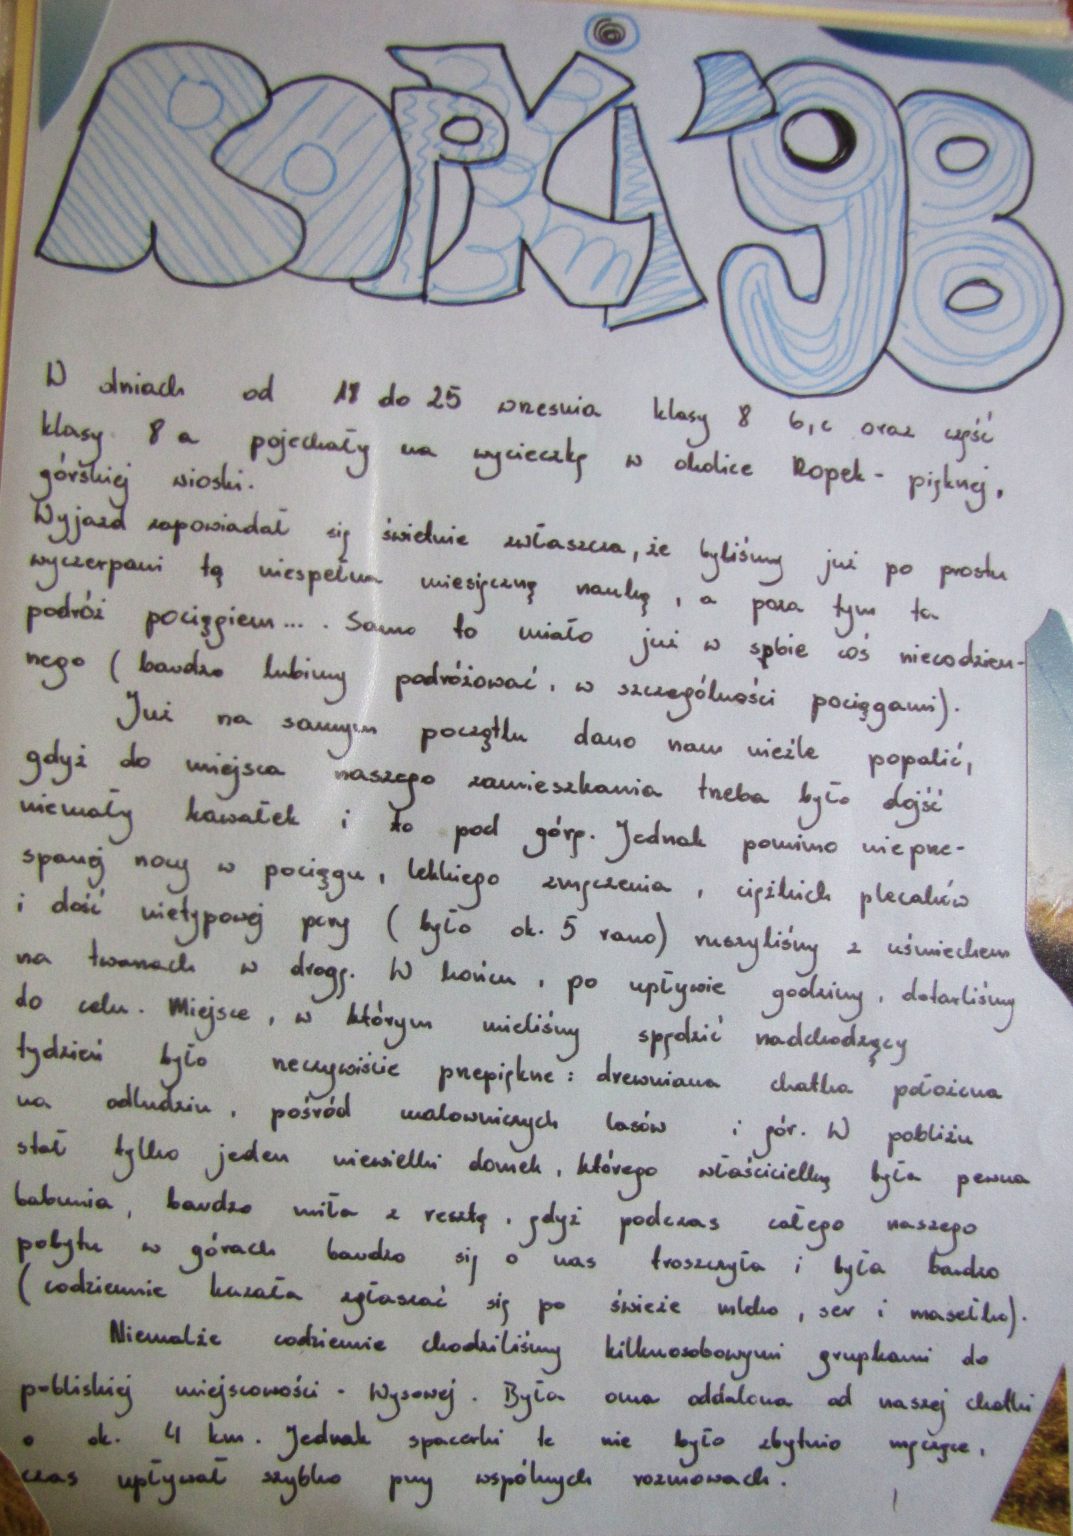 ROPKI '98
W dniach od 18 do 25 wresnia klasy 8 b,c oraz część
klasy 8a pojechały na wycieczkę w okolice Ropek - pięknej,
górskiej wioski.
Wyjazd zapowiadał się świetnie zwłaszcza, że byliśmy już po prostu
wyczerpani tą niespełna miesięczną nauką, a poza tym ta
podróż pociągiem... . Samo to miało już w sobie coś niecodzien-
nego (bardzo lubimy podróżować, w szczególności pociągami).
Już na samym początku dano nam nieźle popalić,
gdyż do miejsca naszego zamieszkania trzeba było dojść
niemały kawałek i to pod górę. Jednak pomimo nieprze-
spanej nocy w pociągu, lekkiego zmęczenia, ciężkich plecaków
i dość nietypowej pory (było ok. 5 rano) ruszyliśmy z uśmiechem
na twarzach w drogę. W końcu, po upływie godziny, dotarliśmy
do celu. Miejsce, w którym mieliśmy spędzić nadchodzący
tydzień było rzeczywiście przepiękne: drewniana chatka położona
na odludziu, pośród malowniczych lasów i gór. W pobliżu
stał tylko jeden niewielki domek, którego właścicielką była pewna
babunia, bardzo miła z resztą, gdyż podczas całego naszego
pobytu w górach bardzo się o nas troszczyła i była bardzo
(codziennie kazała zgłaszać się po świeże mleko, ser i masełko).
Niemalże codziennie chodziliśmy kilkuosobowymi grupkami do
pobliskiej miejscowości - Wysowej. Była ona oddalona od naszej chatki
o ok. 4 km. Jednak spacerki te nie było zbytnio męczące,
czas upływał szybko przy wspólnych rozmowach.